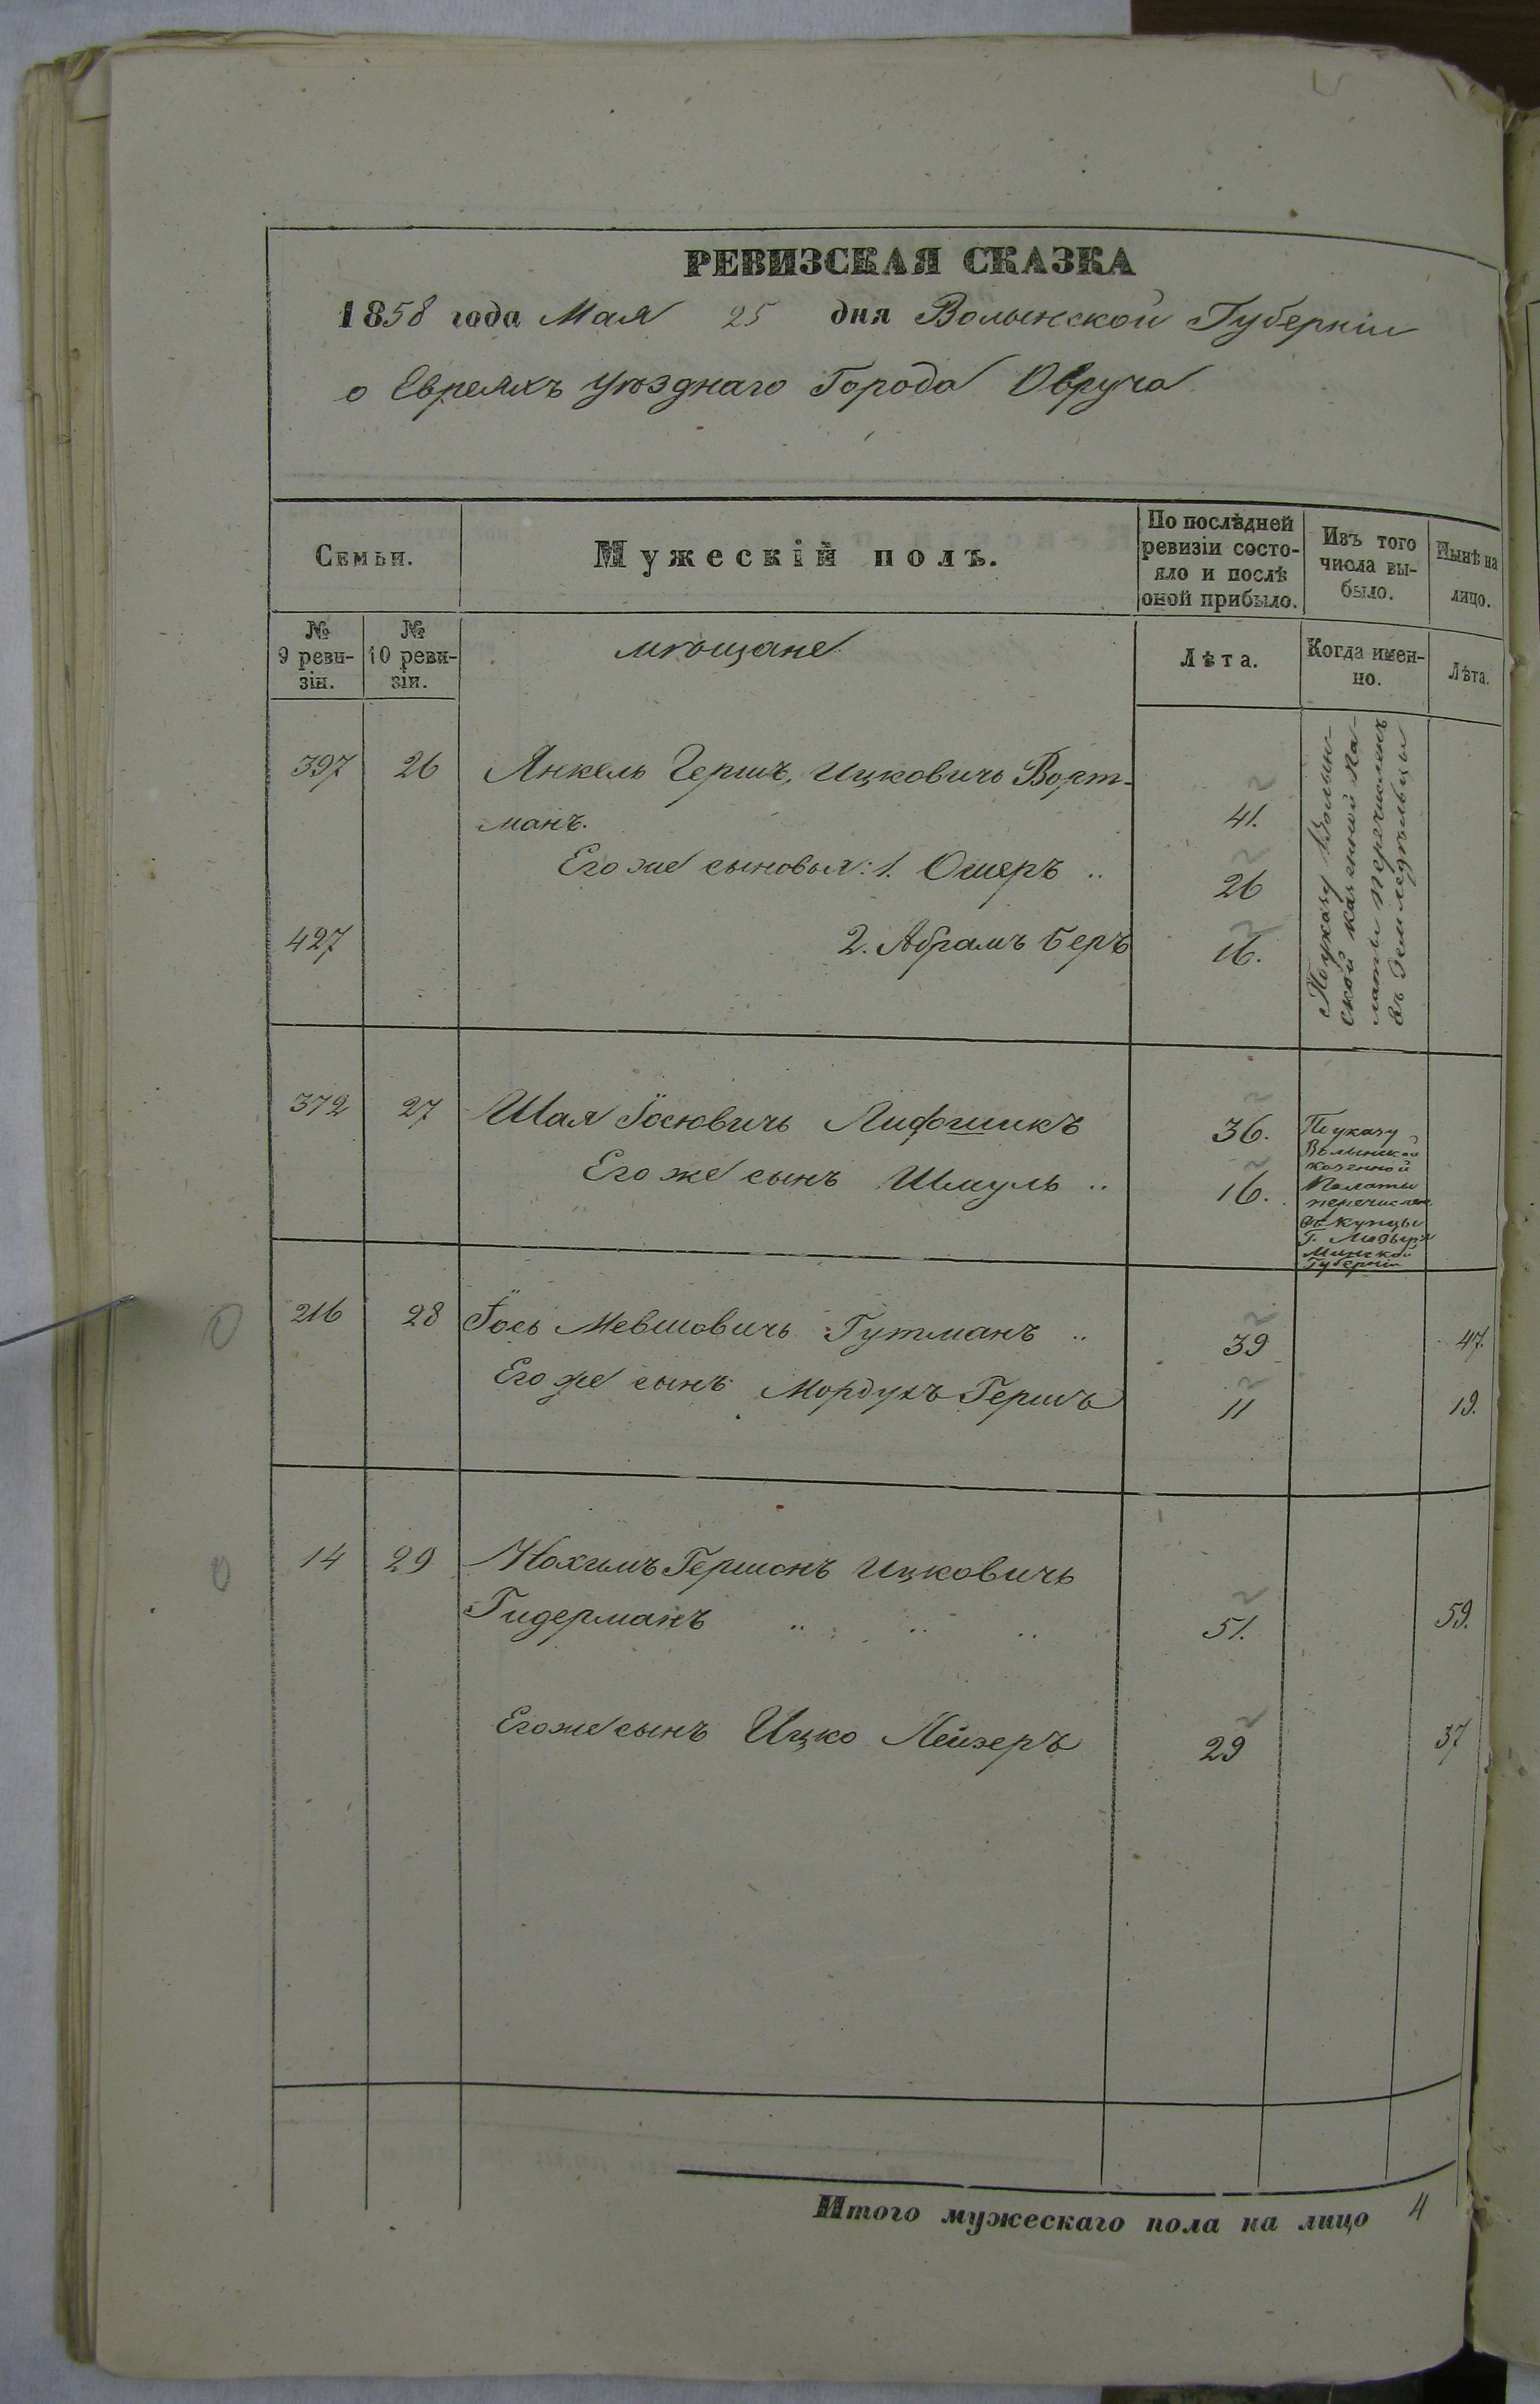 РЕВИЗСКАЯ СКАЗКА
1858 года Мая 25 дня Волынской Губерніи
о Евреяхъ уѣзднаго Города Овруча
Семьи.
Мужескій полъ.
По послѣдней
ревизіи состо-
яло и послѣ
оной прибыло.
Изъ того
числа вы-
было.
Нынѣ на
лицо.
№
9 реви-
зіи.
№
10 реви-
зіи.
мѣщане
Лѣта.
Когда имен-
но.
Лѣта.
397 26 Янкель Гершъ, Ицковичъ Ворт-
манъ. 41.
Его же сыновья: 1. Ошеръ .. 26
427 2. Абрамъ Беръ 16.
По указу Волын-
ской казенной Па-
латы перечисленъ
въ Земледѣльцы
372 27 Шая Іосіовичь Лифшикъ 36.
Его же сынъ Шмуль .. 16.
По указу
Волынской
казенной
Палаты
перечислен
въ купцы
Г. Мозыря
Минской
Губерніи
216 28 Іось Мевшовичь Гутманъ .. 39 47.
Его же сынъ Мордухъ Гершъ 11 19.
14 29 Нохимъ Гершонъ Ицковичь
Гидерманъ .. .. .. 51. 59.
Его же сынъ Ицко Лейзеръ 29 37
Итого мужескаго пола на лицо 4